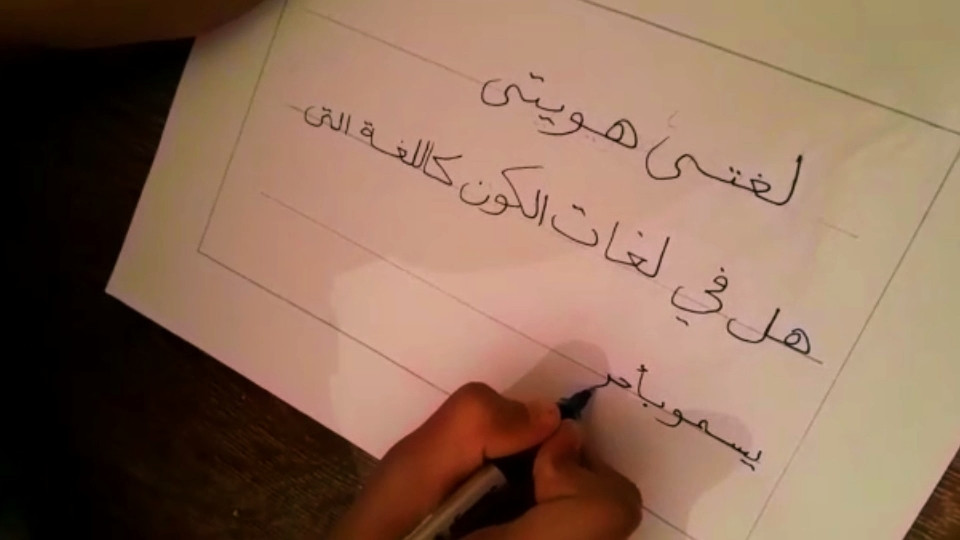 لغتى هويتى
هل في لغات الكون كاللغة التى
يسمو بأحر